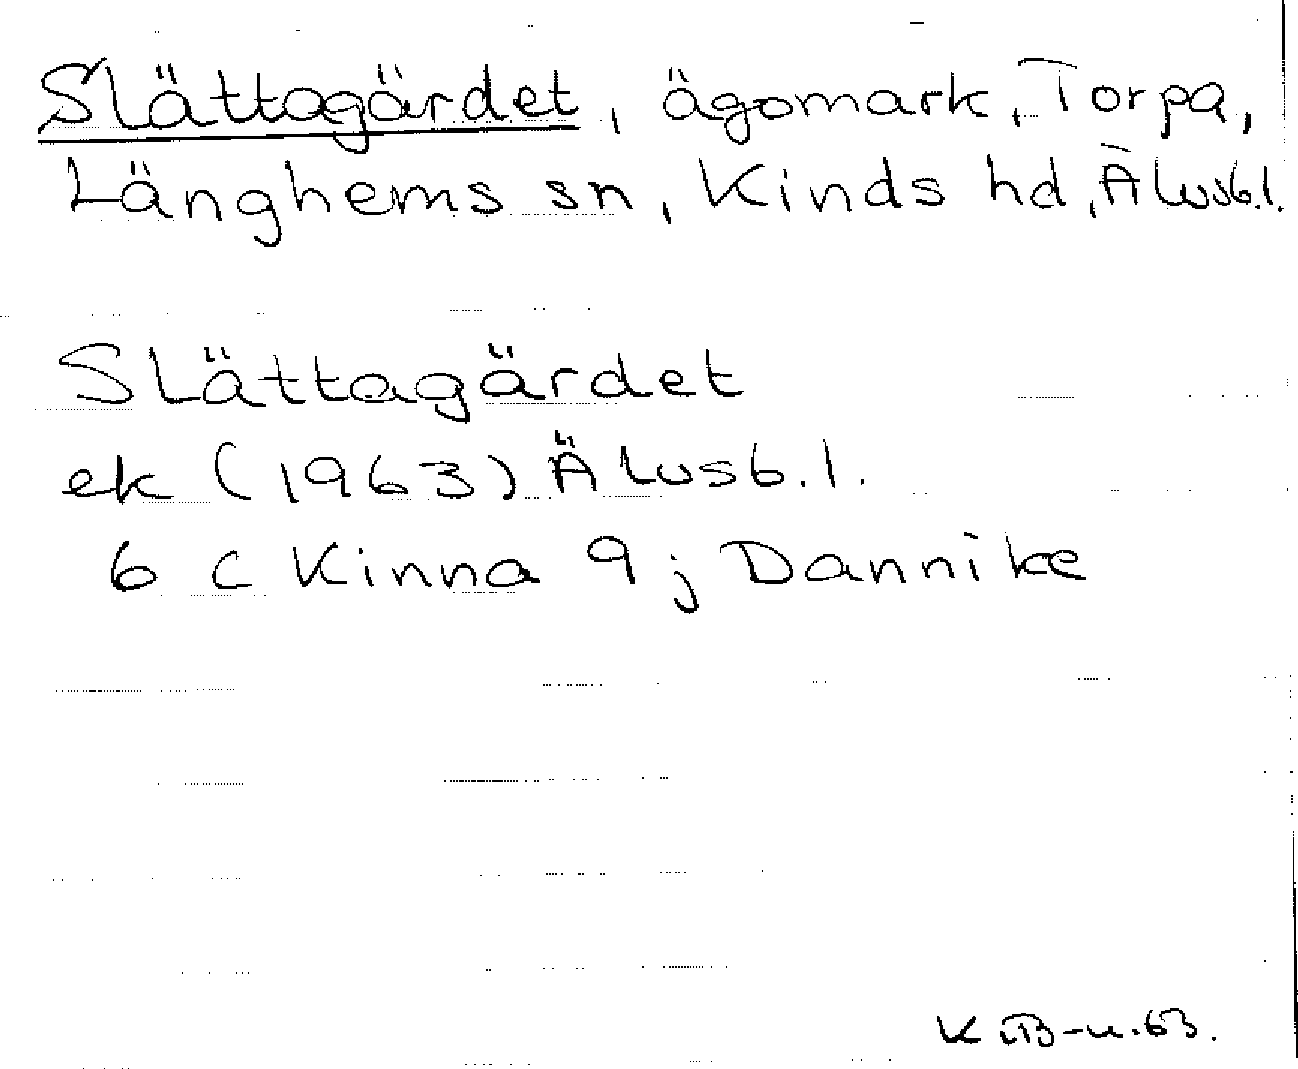 Slättagärdet, ägomark, Torpa,
Länghems sn, Kinds hd, Älvsb.l.
Slättagärdet
ek (1963) Älvsb.l.
6 C Kinna 9 j Dannike